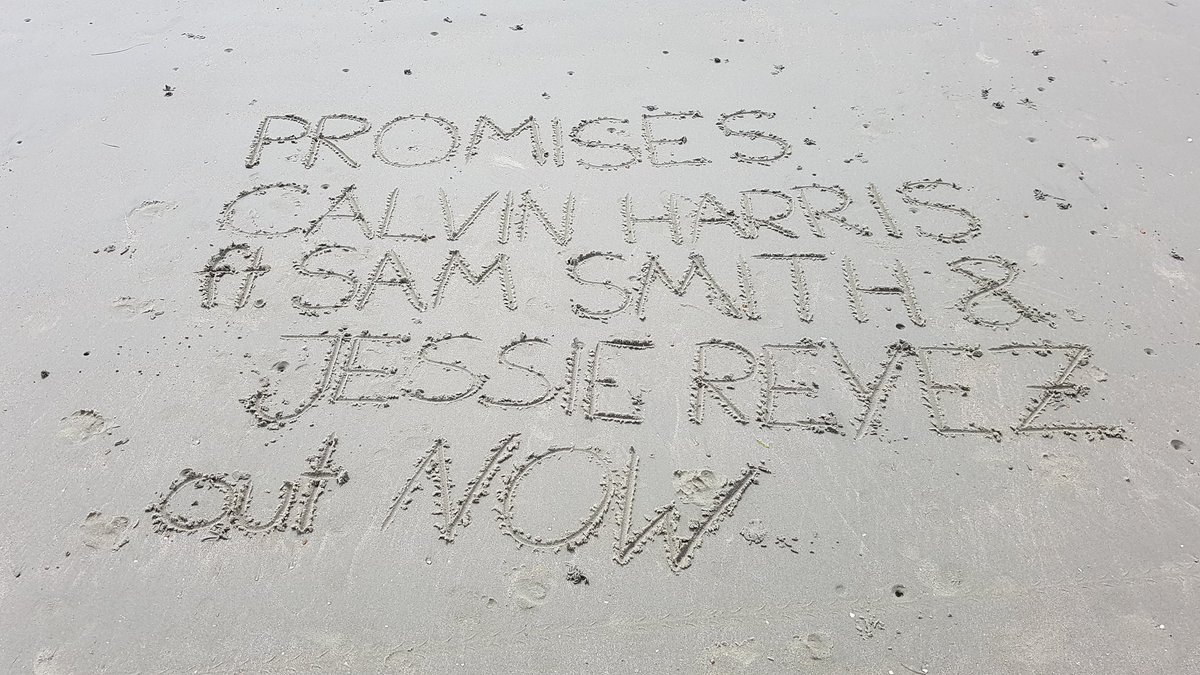 PROMISES
CALVIN HARRIS
ft. SAM SMITH &
JESSIE REYEZ
out NOW